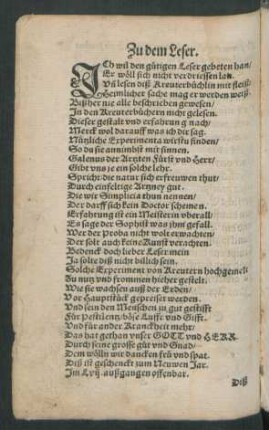 Zu dem Leser.
ICh wil den gütigen Leser gebeten han/
Er wöll sich nicht verdriessen lan
Zů lesen diß Kreuterbüchlin mit fleiß/
Heimlicher sache mag er werden weiß/
Bißher nie alle beschrieben gewesen/
In den Kreuterbüchern nicht gelesen.
Dieser gestalt vnd erfahrung nach/
Merck wol darauff was ich dir sag.
Nützliche Experimenta wirstu finden/
So du sie annimbst mit sinnen.
Galenus der Artzten Fürst vnd Herr/
Gibt vns je ein solche lehr.
Spricht/die natur sich erfreuwen thut/
Durch einfeltige Artzney gut.
Die wir Simplicia thun nennen/
Der darff sich kein Doctor schemen.
Erfahrung ist ein Meisterin vberall/
Es sage der Sophist was jhm gefall.
Wer der Proba nicht wolt erwachten/
Der solt auch keine Kunst verachten.
Bedenck doch lieber Leser mein
Ja solts diß nicht billich sein.
Solche Experiment von Kreutern hochgemelt
Zu nutz vnd frommen hieher gestelt.
Wie sie wachsen auß der Erden/
Vor Hauptstück gepreiset werden.
Vnd sein den Menschen zu gut gestifft
Für Pestilentz/böse Lufft vnd Gifft.
Vnd für ander Kranckheit mehr/
Das hat gethan vnser GOTT vnd HERR.
Durch seine grosse güt vnd Gnad/
Dem wölln wir dancken frü vnd spat.
Diß ist geschenckt zum Neuwen Jar.
Im außgangen offenbar.
Diß